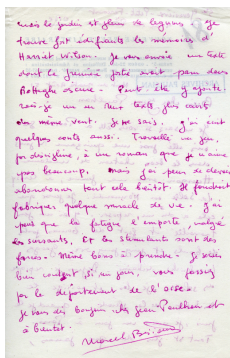 mais le jardin est plein de légumes. Je
trouve fort édifiants les mémoires de
Harriet Wilson. Je vous envoie un texte
dont la première partie avait paru dans
Botteghe oscure. Peut-être y ajouterai-je
un ou deux textes plus courts
du même vent. Je ne sais. J'ai écrit
quelques contes aussi. Travaille un peu,
par discipline, à un roman que je n'aime
pas beaucoup, mais j'ai peur de devoir
abandonner tout cela bientôt. Il faudrait
fabriquer quelque miracle de vie. J'ai
peur que la fatigue l'emporte, malgré
les suivants. Et les stimulants sont des
forces. Même bons à prendre. Je serais
bien content si un jour, vous passiez
par le département de l'Oise.
Je vous dis bonjour chez Jean Paulhan et
à bientôt.
Marcel